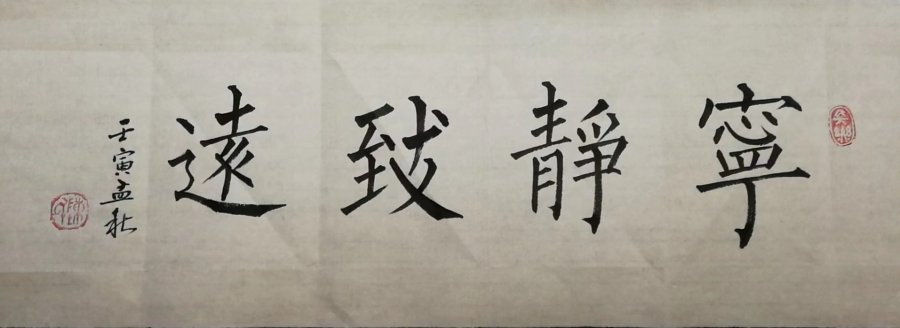 寧靜致遠
壬寅孟秋